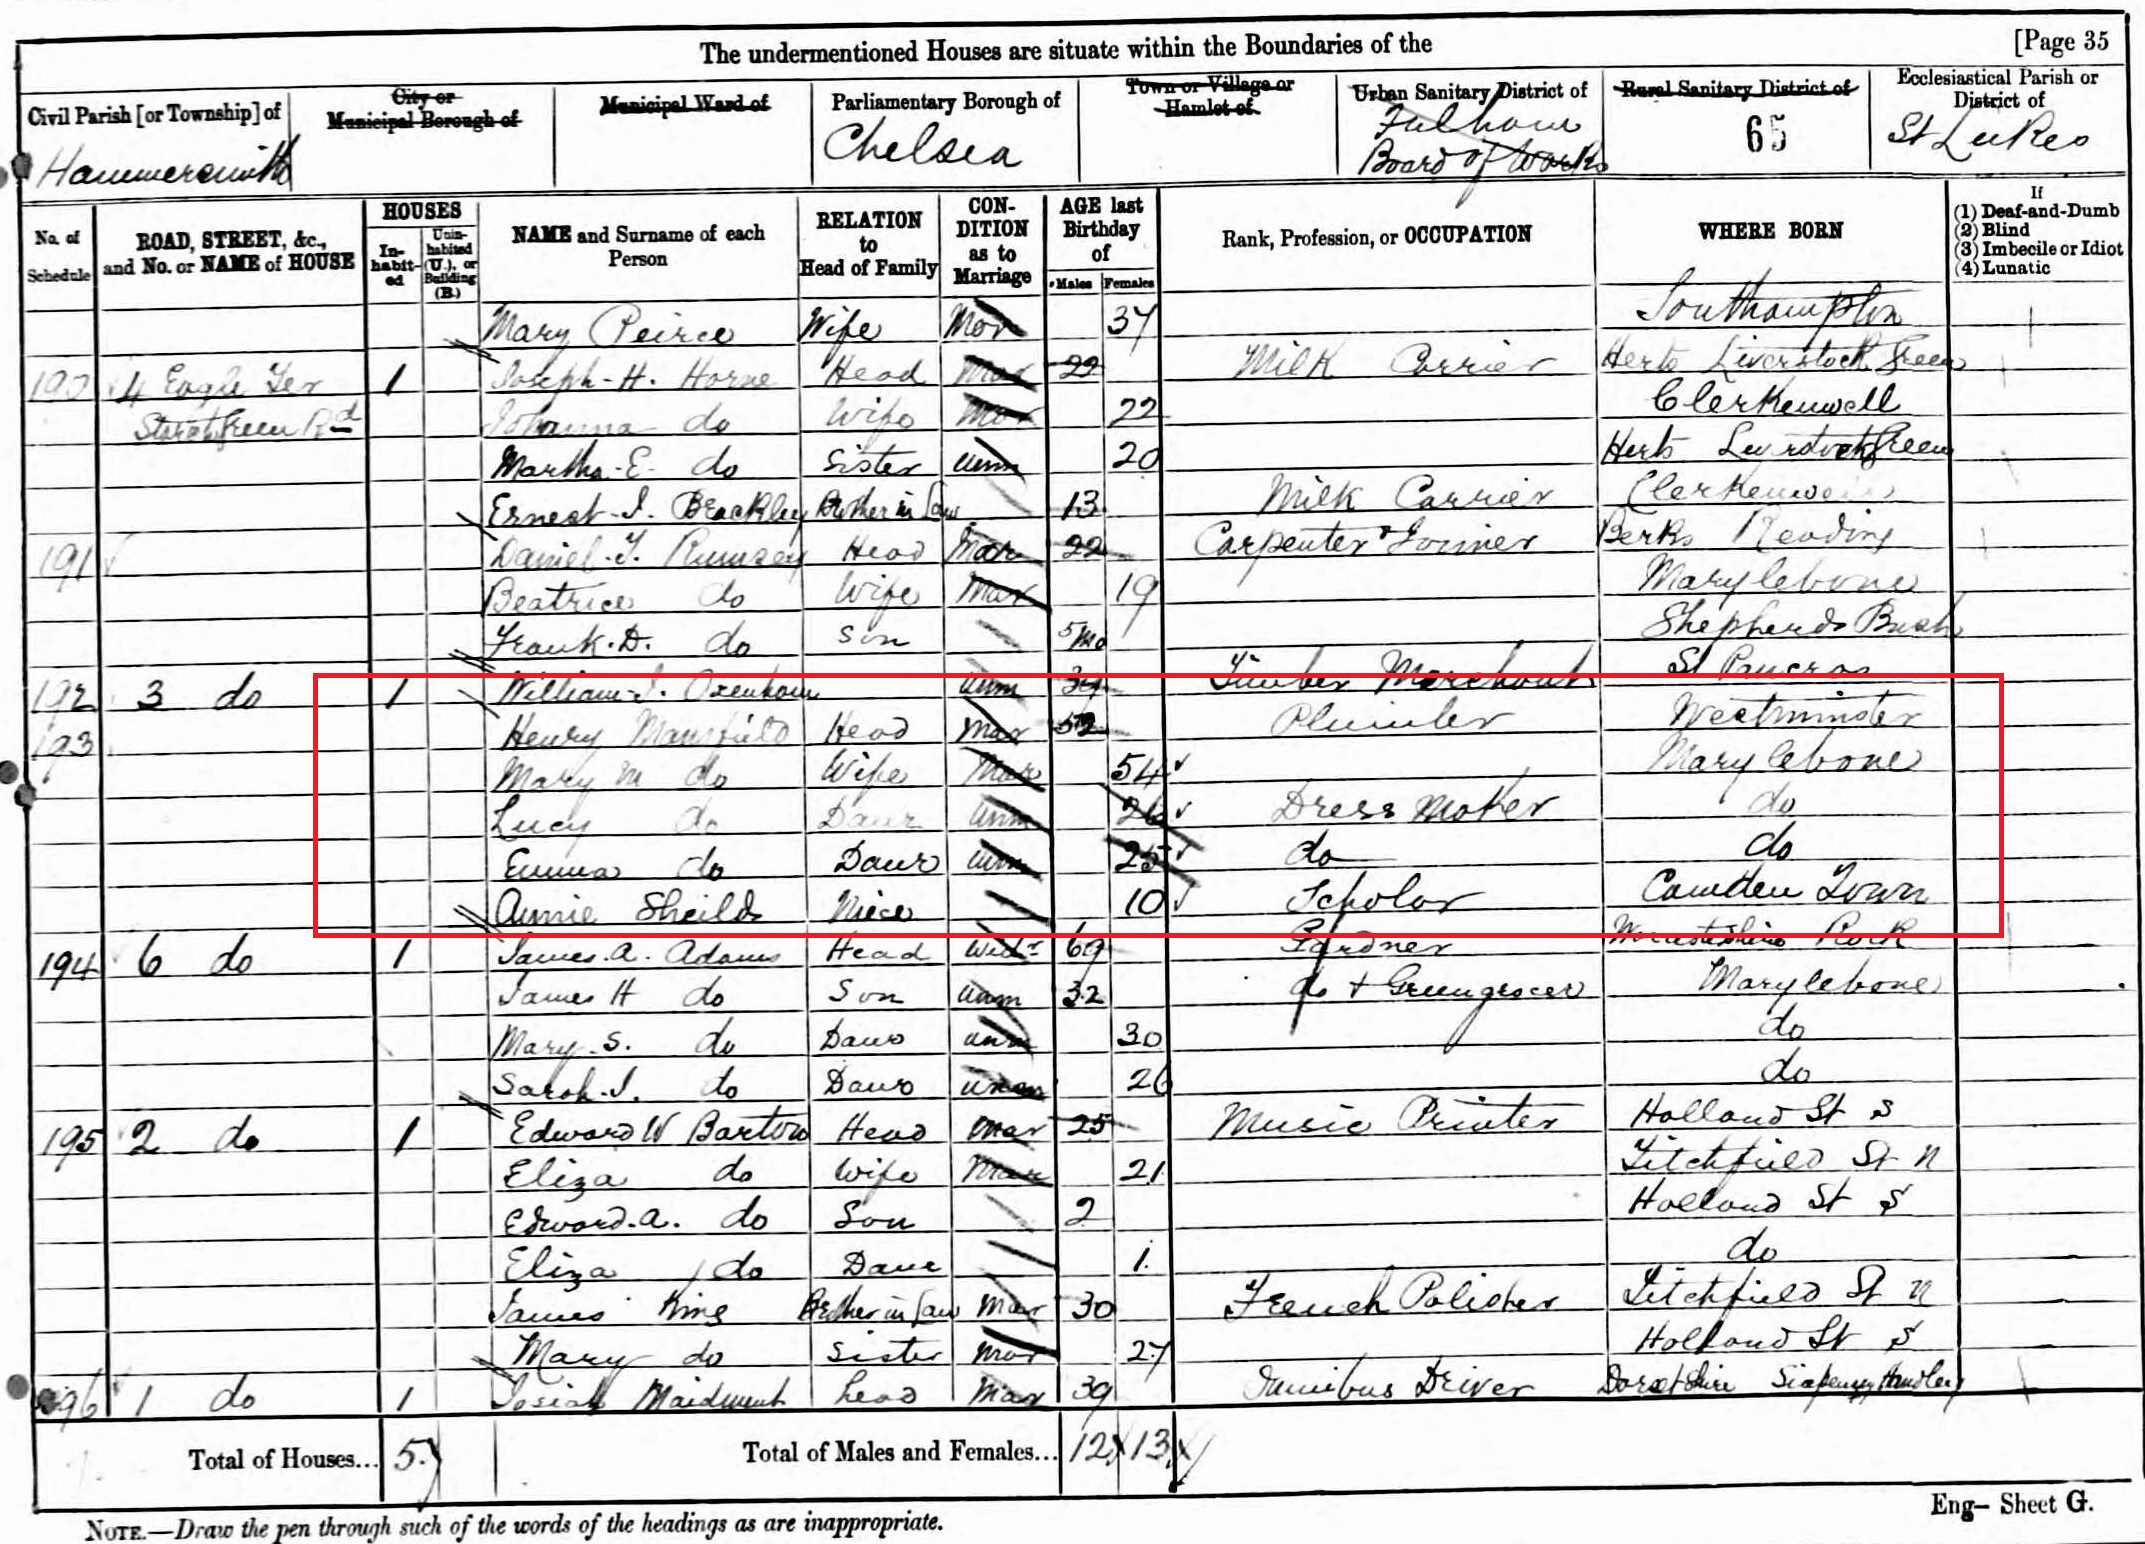 The undermentioned Houses are situate within the Boundaries of the [Page 35
Civil Parish [or Township] of City or Municipal Borough of Municipal Ward of Parliamentary Borough of Town or Village or Hamlet of Urban Sanitary District of Rural Sanitary District of Ecclesiastical Parish or District of
Hammersmith Chelsea Fulham Board of Works 65 St Lukes
No. of Schedule ROAD, STREET, &c., and No. or NAME of HOUSE HOUSES In-habit-ed Unin-habited (U.), or Building (B.) NAME and Surname of each Person RELATION to Head of Family CON-DITION as to Marriage AGE last Birthday of Males Females Rank, Profession, or OCCUPATION WHERE BORN If (1) Deaf-and-Dumb (2) Blind (3) Imbecile or Idiot (4) Lunatic
Mary Peirce Wife Mar 37 Southampton
190 4 Eagle Ter 1 Joseph H. Horne Head Mar 22 Milk Carrier Herts Liverstock Green
Starch Green Rd Johanna do Wife Mar 22 Clerkenwell
Martha E do Sister unm 20 Herts Green
Ernest J. Brackley Brother in Law 13 Milk Carrier Clerkenwell
191 Daniel T. Rumsey Head Mar 22 Carpenter & Joiner Berks Reading
Beatrice do Wife Mar 19 Marylebone
Frank. D. do Son 5 Mo Shepherds Bush
192 3 do 1 William J. Oxenham unm 39 Timber Merchant St Pancras
193 Henry Mansfield Head Mar 52 Plumber Westminster
Mary M do Wife Mar 54 Marylebone
Lucy do Daur unm 26 Dress Maker do
Emma do Daur unm 25 do do
Annie Sheilds Niece 10 Scholar Camden Town
194 6 do 1 James. A. Adams Head Widr 69 Gardner Worcestershire Rock
James H do Son unm 32 do & Greengrocer Marylebone
Mary. S. do Daur unm 30 do
Sarah. J. do Daur unm 26 do
195 2 do 1 Edward W Barton Head Mar 25 Music Printer Holland St S
Eliza do Wife Mar 21 Titchfield St N
Edward. A. do Son 2 Holland St S
Eliza do Daur 1 do
James King Brother in Law Mar 30 French Polisher Titchfield St N
Mary do Sister Mar 27 Holland St S
196 1 do 1 Josiah Maidment head Mar 39 Omnibus Driver Dorsetshire Sixpenny Handley
Total of Houses... 5 Total of Males and Females... 12 13
Eng— Sheet G.
NOTE.—Draw the pen through such of the words of the headings as are inappropriate.